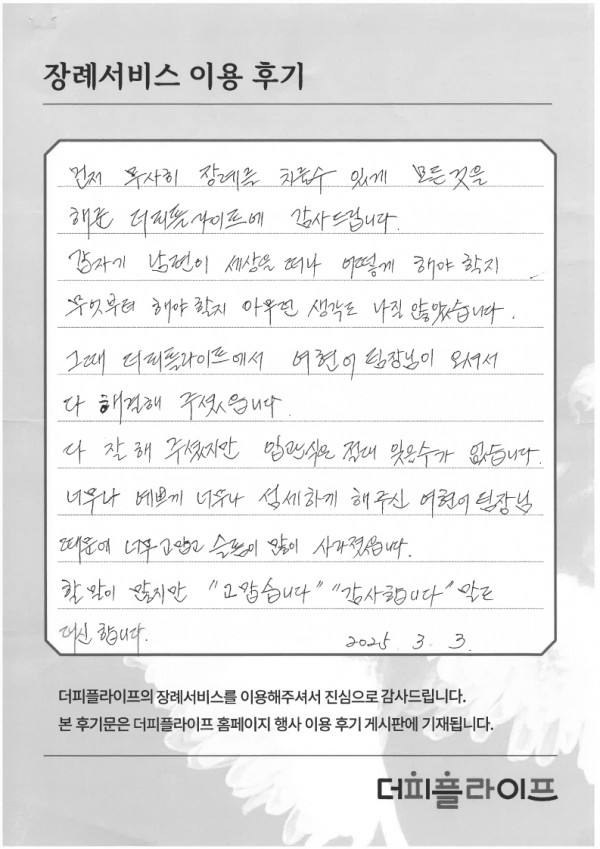 장례서비스 이용 후기
먼저 무사히 장례를 치를수 있게 모든것을
해준 더피플라이프에 감사드립니다.
갑자기 남편이 세상을 떠나 어떻게 해야 할지
무엇부터 해야 할지 아무런 생각도 나질 않았습니다.
그때 더피플라이프에서 여현어팀장님이 오셔서
다 해결해 주셨습니다.
다 잘해 주셨지만 입관식은 절대 잊을수가 없습니다.
너무나 예쁘게 너무나 섬세하게 해주신 여현어팀장님
때문에 너무 고맙고 슬픔이 많이 사라졌습니다.
할 말이 많지만 "고맙습니다" "감사합니다" 말로
대신 합니다. 2025. 3. 3.
더피플라이프의 장례서비스를 이용해주셔서 진심으로 감사드립니다.
본 후기문은 더피플라이프 홈페이지 행사 이용 후기 게시판에 기재됩니다.
더피플라이프